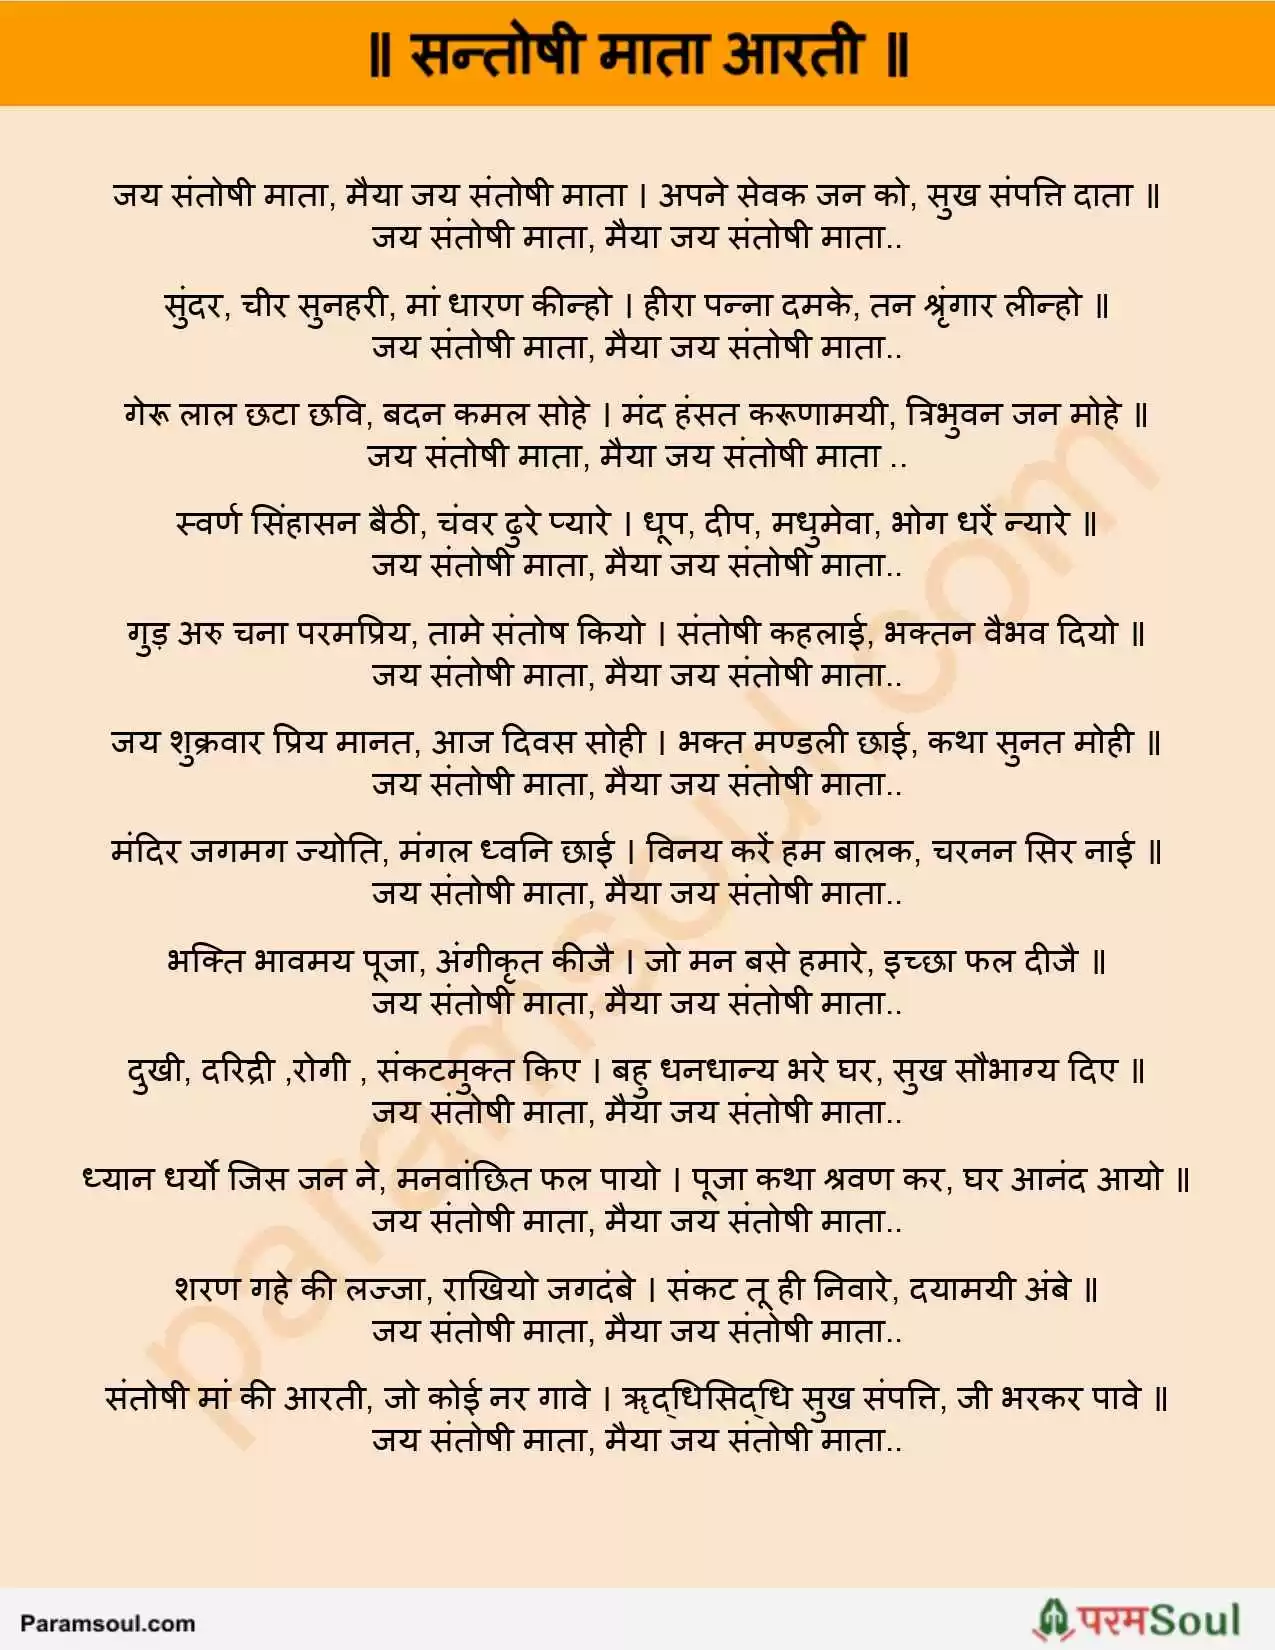 ॥ सन्तोषी माता आरती ॥
जय संतोषी माता, मैया जय संतोषी माता । अपने सेवक जन को, सुख संपत्ति दाता ॥
जय संतोषी माता, मैया जय संतोषी माता..
सुंदर, चीर सुनहरी, मां धारण कीन्हो । हीरा पन्ना दमके, तन श्रृंगार लीन्हो ॥
जय संतोषी माता, मैया जय संतोषी माता..
गेरू लाल छटा छवि, बदन कमल सोहे । मंद हंसत करूणामयी, त्रिभुवन जन मोहे ॥
जय संतोषी माता, मैया जय संतोषी माता ..
स्वर्ण सिंहासन बैठी, चंवर ढुरे प्यारे । धूप, दीप, मधुमेवा, भोग धरें न्यारे ॥
जय संतोषी माता, मैया जय संतोषी माता..
गुड़ अरु चना परमप्रिय, तामे संतोष कियो । संतोषी कहलाई, भक्तन वैभव दियो ॥
जय संतोषी माता, मैया जय संतोषी माता..
जय शुक्रवार प्रिय मानत, आज दिवस सोही । भक्त मण्डली छाई, कथा सुनत मोही ॥
जय संतोषी माता, मैया जय संतोषी माता..
मंदिर जगमग ज्योति, मंगल ध्वनि छाई । विनय करें हम बालक, चरनन सिर नाई ॥
जय संतोषी माता, मैया जय संतोषी माता..
भक्ति भावमय पूजा, अंगीकृत कीजै । जो मन बसे हमारे, इच्छा फल दीजै ॥
जय संतोषी माता, मैया जय संतोषी माता..
दुखी, दरिद्री ,रोगी , संकटमुक्त किए । बहु धनधान्य भरे घर, सुख सौभाग्य दिए ॥
जय संतोषी माता, मैया जय संतोषी माता..
ध्यान धर्यो जिस जन ने, मनवांछित फल पायो । पूजा कथा श्रवण कर, घर आनंद आयो ॥
जय संतोषी माता, मैया जय संतोषी माता..
शरण गहे की लज्जा, राखियो जगदंबे । संकट तू ही निवारे, दयामयी अंबे ॥
जय संतोषी माता, मैया जय संतोषी माता..
संतोषी मां की आरती, जो कोई नर गावे । ॠद्‍धिसिद्‍धि सुख संपत्ति, जी भरकर पावे ॥
जय संतोषी माता, मैया जय संतोषी माता..
paramsoul.com
Paramsoul.com
परमSoul